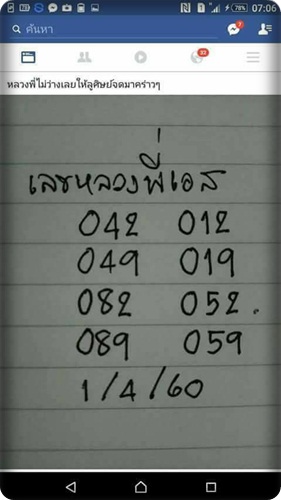 07:06
78%
ค้นหา
7
33
หลวงพี่ไม่ว่างเลยให้ลูศิษย์จดมาคร่าวๆ
เลขหลวงพี่เอส
042 012
049 019
082 052.
089 059
1/4/60